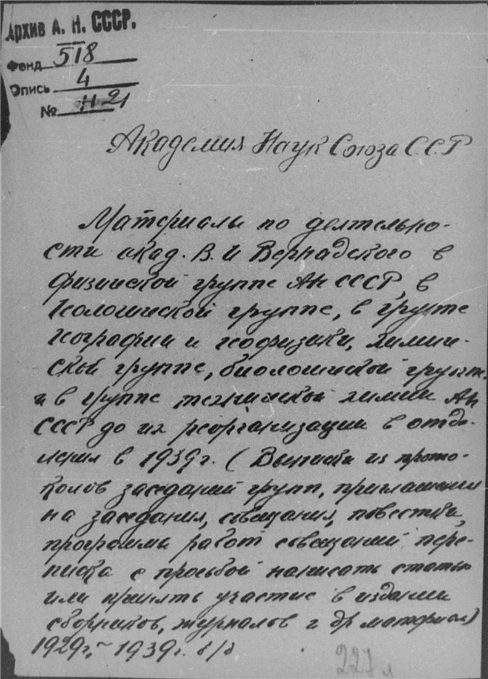 Архив А. Н. СССР.
Фонд 518
Опись 4
№ 21
Академия Наук Союза С.С.Р
Материалы по деятельно-
сти акад. В. И Вернадского в
физической группе АН СССР, в
геологической группе, в группе
географии и геофизики, химиче-
ской группе, биологической группе
и в группе технической химии АН
СССР до их реорганизации в отде-
ления в 1939 г. (Выписки из прото-
колов заседаний групп, приглашения
на заседания, совещания, повестки,
программы работ совещаний, пере-
писка с просьбой написать статью
или принять участие в издании
сборников, журналов и др материалы)
1929 г. - 1939 г. б/д
227 л